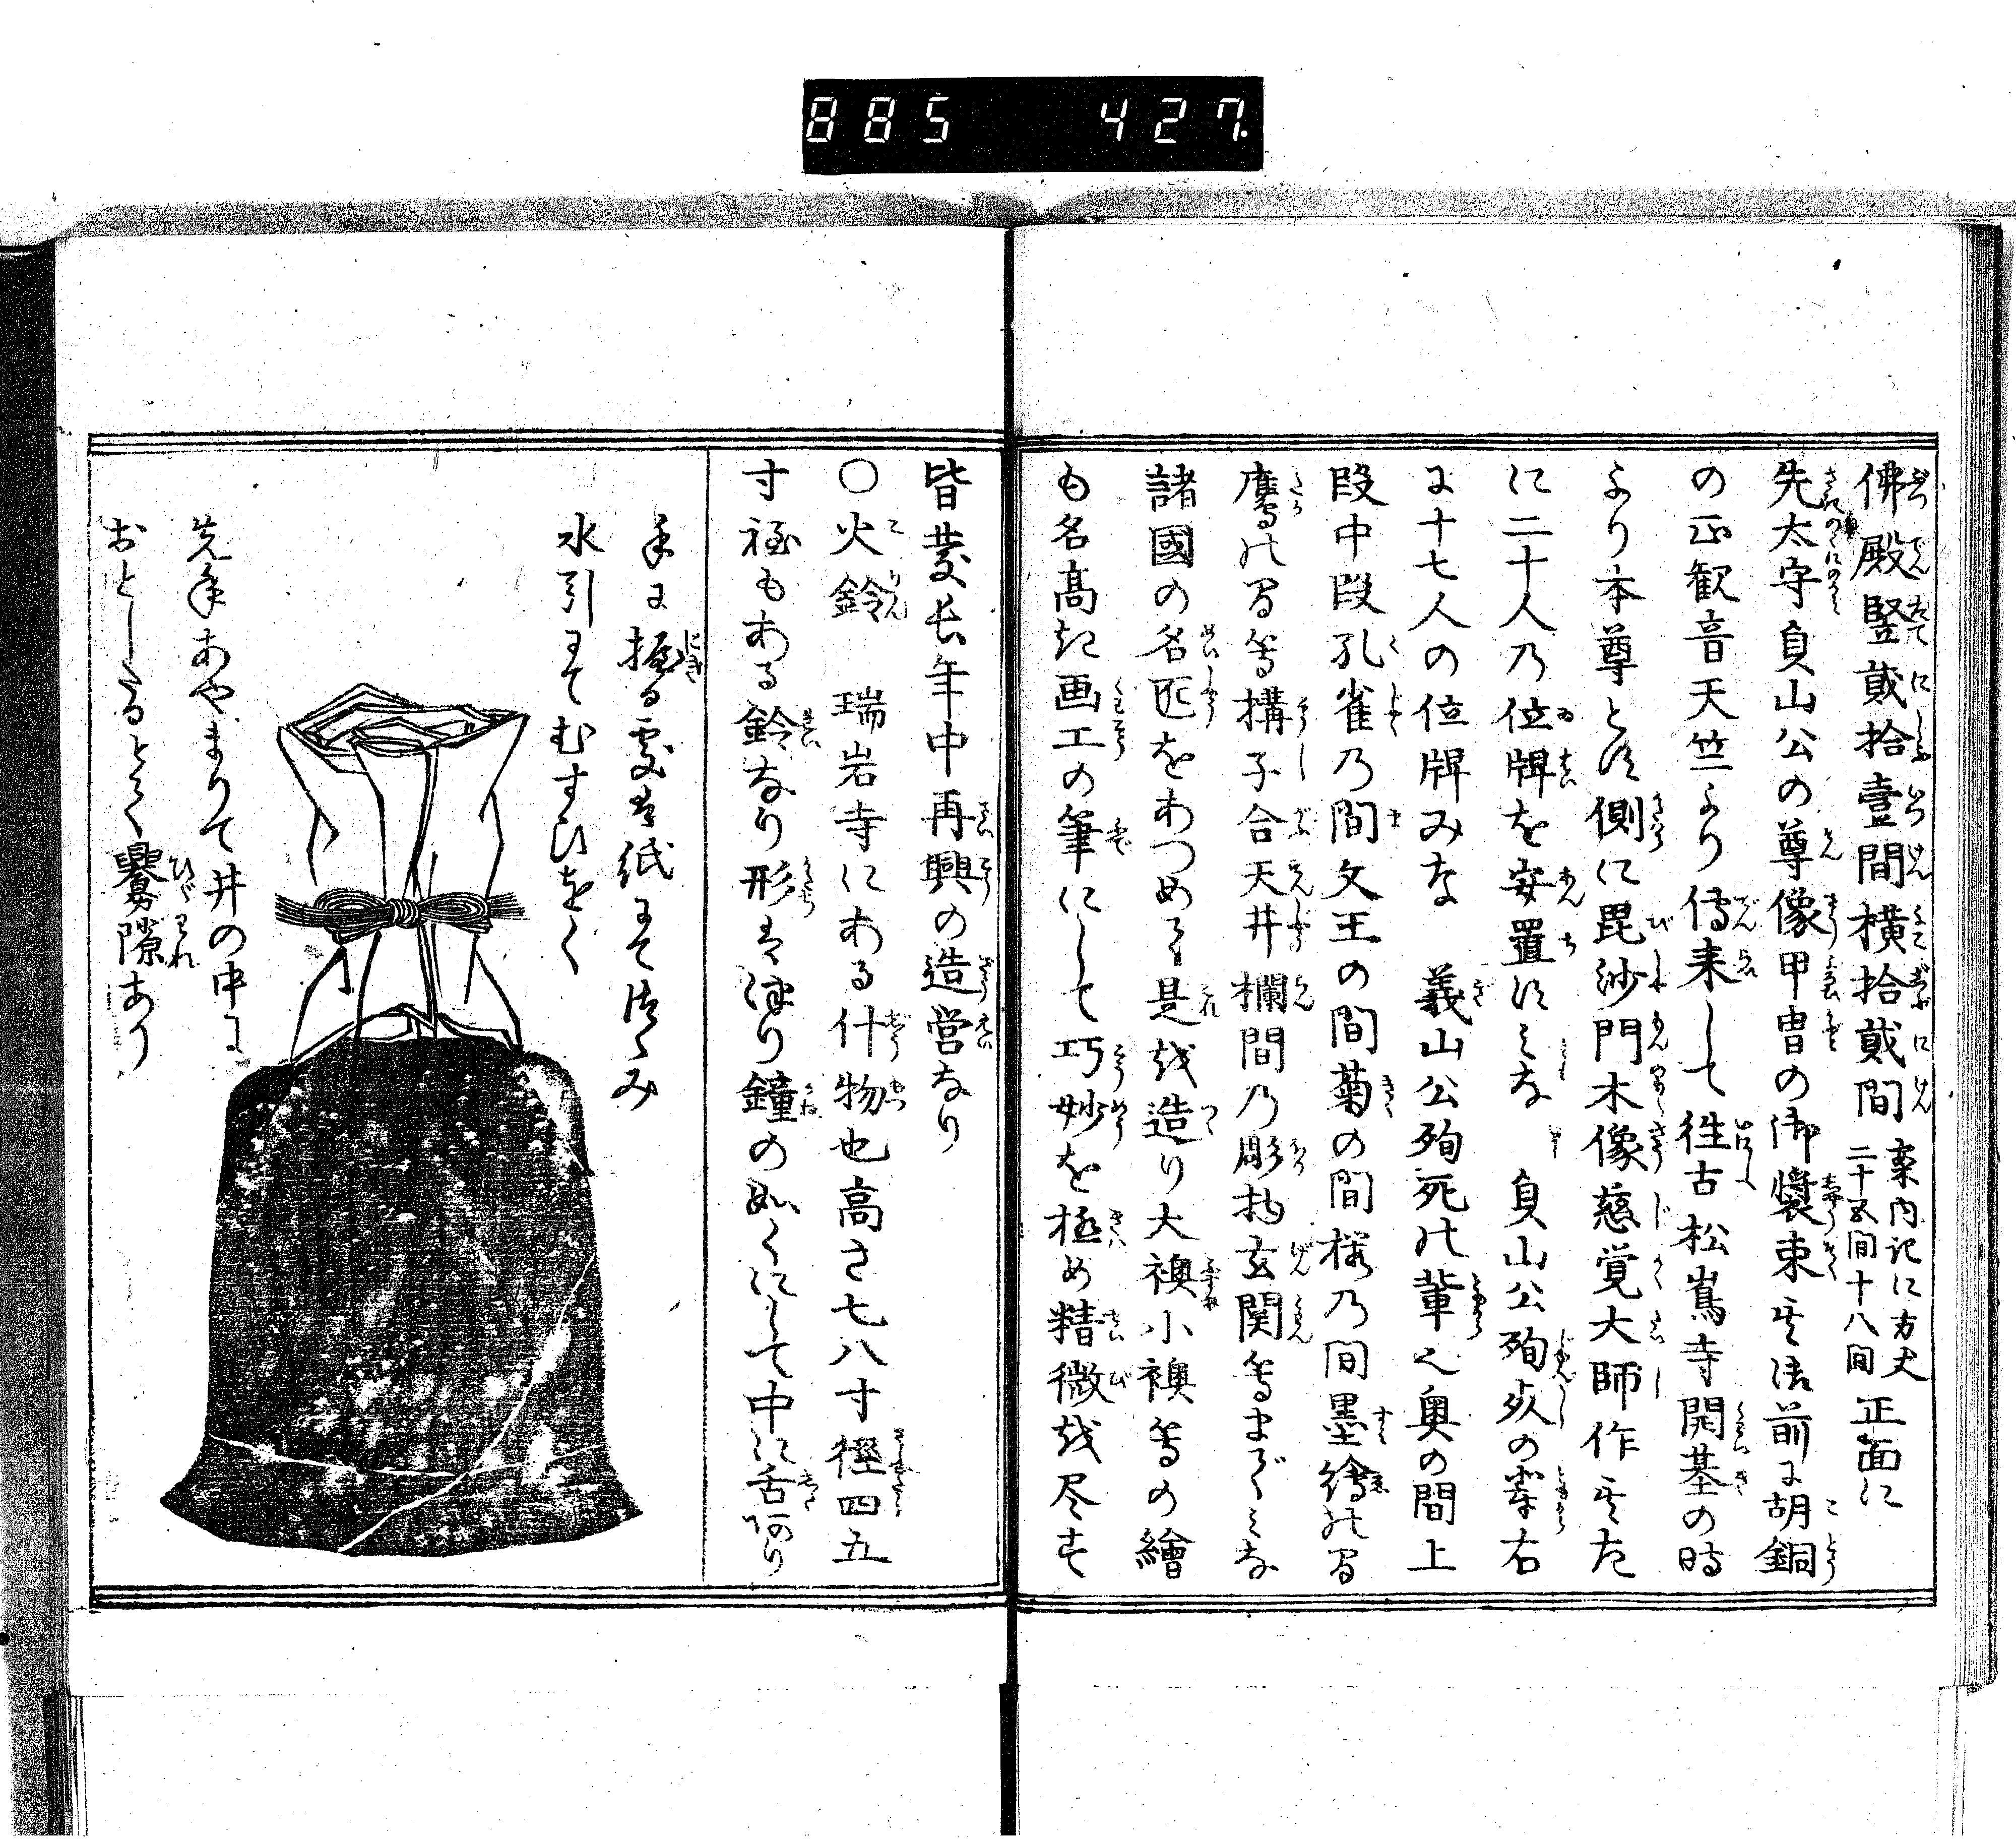 885 427.
佛殿竪貳拾壹間横拾貳間 案内記に方丈二十五間十八間 正面に
先太守貞山公の尊像甲冑の御裝束其法前に胡銅
の正観音天竺より傳来して徃古松嶌寺開基の時
より本尊とす側に毘沙門木像慈覚大師作其左
に二十人乃位牌を安置すみな 貞山公殉死の輩右
に十七人の位牌みな 義山公殉死の輩也奥の間上
段中段孔雀乃間文王の間菊の間桜乃間墨繪の間
鷹の間等構子合天井欄間乃彫物玄関等までみな
諸國の名匠をあつめて是を造り大襖小襖等の繪
も名高き画工の筆にして巧妙を極め精微を尽す
皆慶長年中再興の造営なり
〇火鈴 瑞岩寺にある什物也高さ七八寸徑四五
寸程もある鈴なり形は釣り鐘の如くにして中に舌あり
手に握る處は紙にてつゝみ
水引にてむすひをく
先年あやまりて井の中に
おとしたるとて釁隙あり